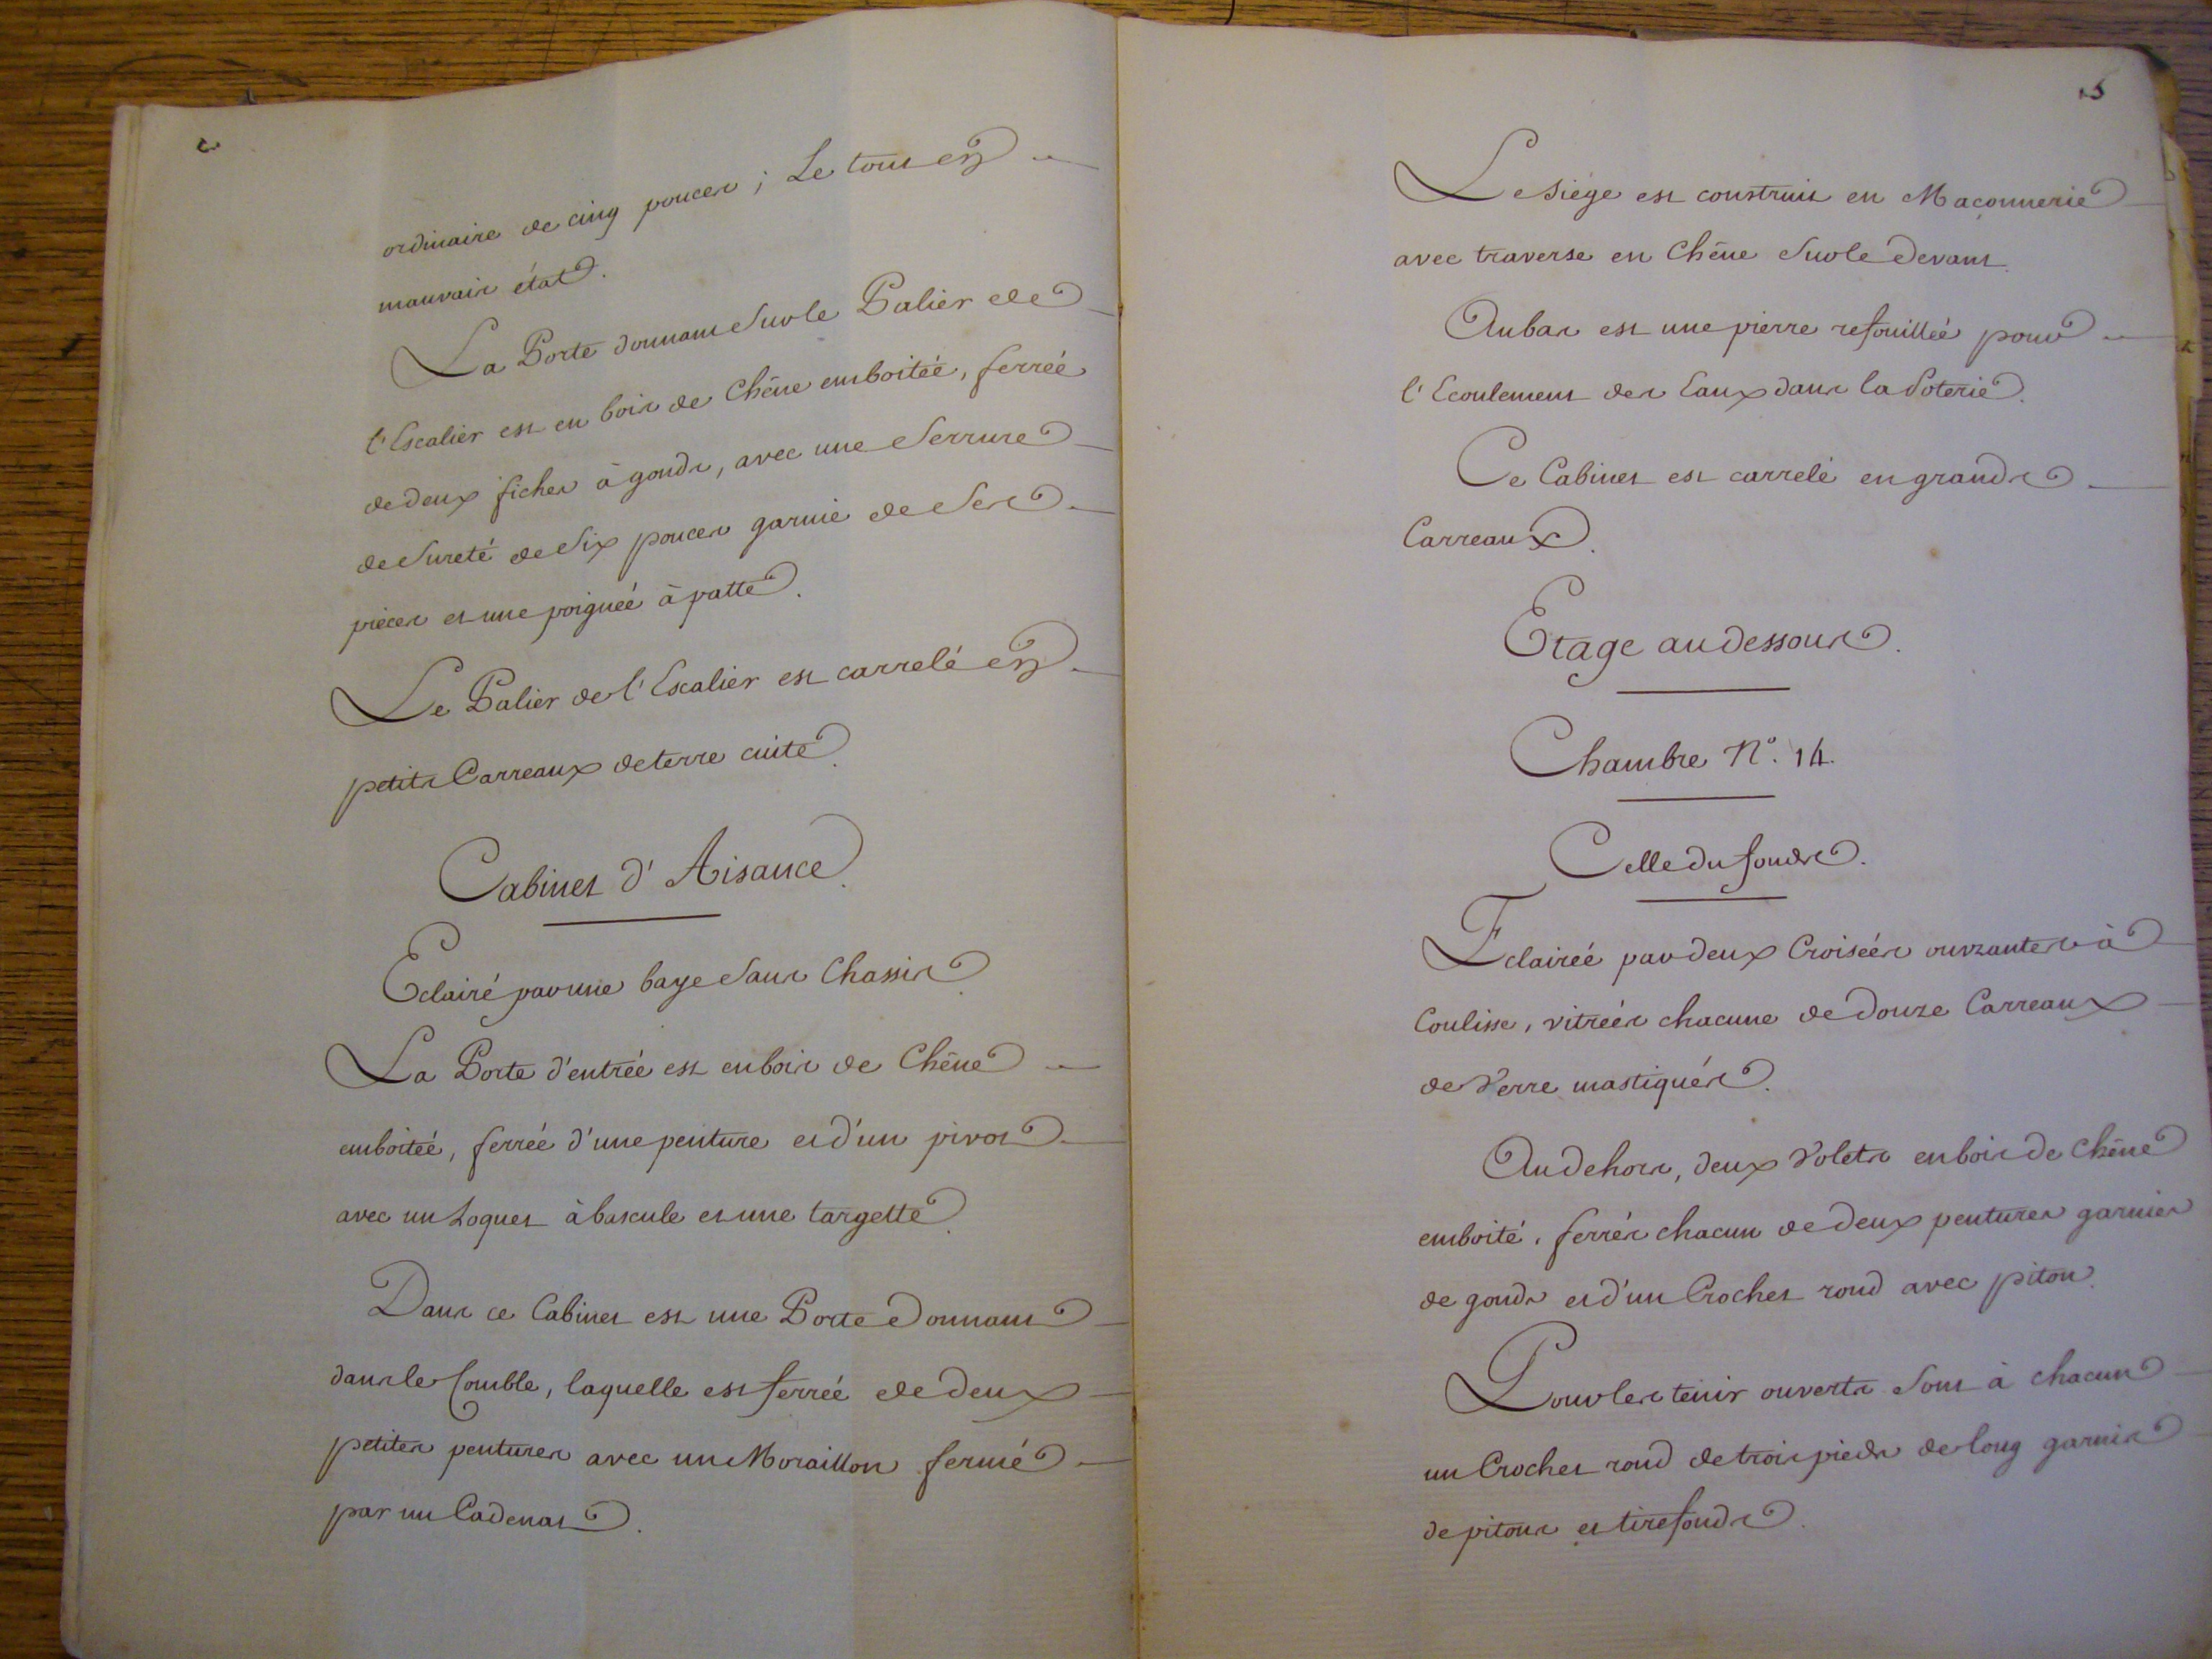 ordinaire de cinq pouces ; Le tout en
mauvais état.
La Porte donnant sur le Palier de
l'Escalier est en bois de Chêne emboitée, ferrée
de deux fiches à gonds, avec une Serrure
de Sureté de Six pouces garnie de Ses
pièces et une poignée à patte.
Le Palier de l'Escalier est carrelé en
petits Carreaux de terre cuite.
Cabinet d'Aisance.
Eclairé par une baye Sans Chassis.
La Porte d'entrée est en bois de Chêne
emboitée, ferrée d'une penture et d'un pivot
avec un Loquet à bascule et une targette.
Dans ce Cabinet est une Porte Donnant
dans le Comble, laquelle est ferrée de deux
petites pentures avec un Moraillon fermé
par un Cadenat.
5
Le Siége est construit en Maçonnerie
avec traverse en Chêne Sur le Devant.
Au bas est une pierre refouillée pour
l'Ecoulement des Eaux dans la Poterie.
Ce Cabinet est carrelé en grands
Carreaux.
Etage au dessous.
Chambre N.º 14.
Celle du fonds.
Eclairée par deux Croisées ouvrantes à
Coulisse, vitrées chacune de Douze Carreaux
de Verre mastiqués.
Au dehors, deux Volets en bois de Chêne
emboité, ferrés chacun de deux pentures garnies
de gonds et d'un Crochet rond avec piton.
Pour les tenir ouverts Sont à chacun
un Crochet rond de trois pieds de long garnis
de pitons et tirefonds.